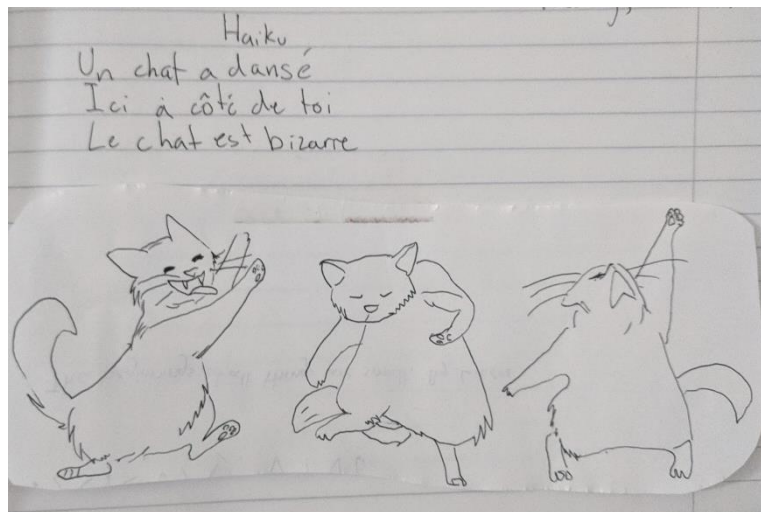 Haiku
Un chat a dansé
Ici à côté de toi
Le chat est bizarre